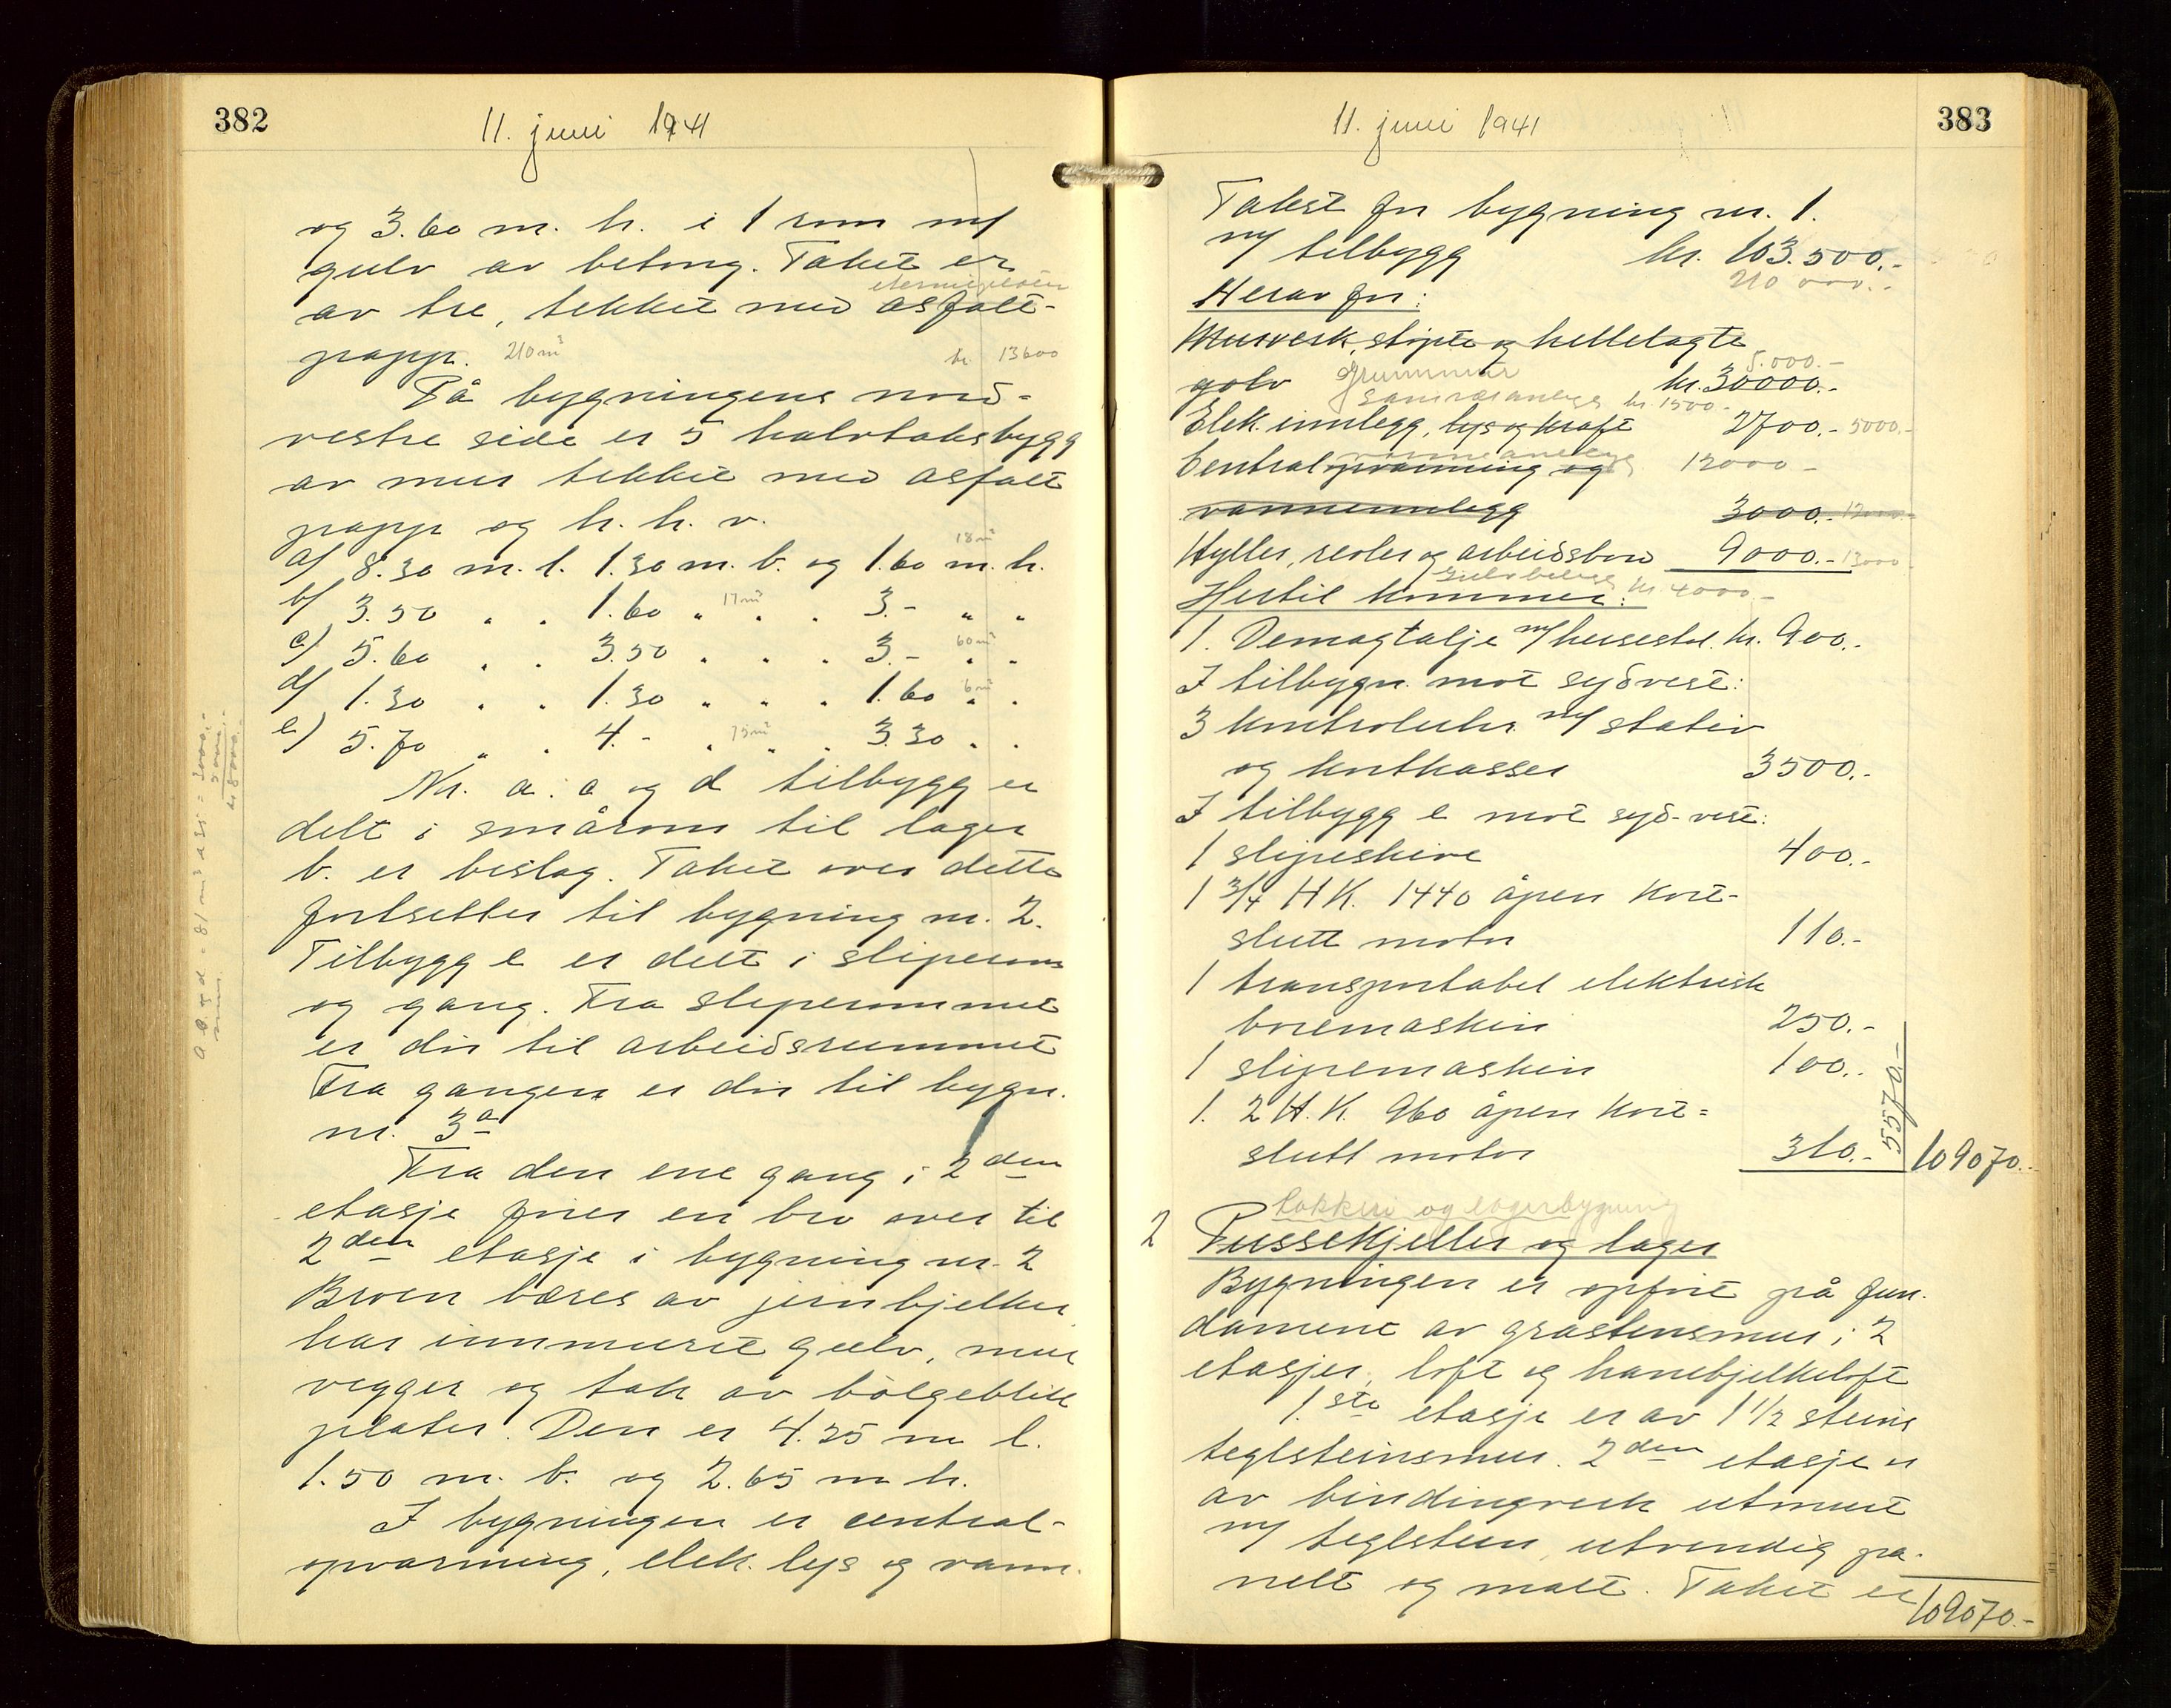 382
11. juni 1941
og 3.60 m. h. i 1 rom m/
gulv av betong. Taket er
eternitplater
av tre, tekket med asfalt-
papp. 210 m³ kr 13600
På bygningens nord-
vestre side er 5 halvtaksbygg
av mur tekket med asfalt
papp og h. h. v.
18 m³
a/ 8.30 m. l. 1.30 m. b. og 1.60 m. h.
b/ 3.50 " " 1.60 " 17 m³ " " 3.- " "
c) 5.60 " " 3.50 " " " 3.- 60 m³ " "
d/ 1.30 " " 1.30 " " " 1.60 6 m³ " "
e) 5.70 " " 4.- " 75 m³ " " 3.30 " "
Nr. a. c og d tilbygg er
delt i smårom til lager
b. er beslag. Taket over dette
fortsetter til bygning nr. 2.
Tilbygg e er delt i sliperom
og gang. Fra sliperommet
er dør til arbeidsrummet
Fra gangen er dør til bygn.
nr. 3a
Fra den ene gang i 2den
etasje fører en bro over til
2den etasje i bygning nr. 2
Broen bæres av jernbjelker
har innmuret gulv, mur
vegger og tak av bølgeblikk
plater. Den er 4.25 m l.
1.50 m. b. og 2.65 m h.
I bygningen er central-
opvarming, elek. lys og vann.
383
11. juni 1941
Takst for bygning nr. 1.
m/ tilbygg kr. 103.500.-
210 000.-
Herav for:
Murverk, støpte og hellelagte
5.000.-
golv Grunnmur kr. 30000.-
Sanitæranlegg kr. 1500.-
Elek. innlegg, lys og kraft 2700.- 5000.-
varmeanlegg
Centralopvarming og 12000.-
vanninnlegg 3000.-
Hyller, reoler og arbeidsbord 9000.- 13000
Gulvbelegg kr. 4000.-
Hertil kommer:
1. Demagtalje m/ heisestol. kr. 900.-
I tilbygn. mot sydvest:
3 kontrolluhr m/ stativ
og kortkasser 3500.-
I tilbygg e mot syd-vest:
1 slipeskive 400.-
1 3/4 H K. 1440 åpen kort-
slutt motor 110.-
1 transportabel elektrisk
boremaskin 250.-
1 slipemaskin 100.-
1. 2 H. K. 960 åpen kort=
slutt motor 310.- 5570.- 109070.-
Lakkeri og lagerbygning
2 Pussekjeller og lager
Bygningen er opført på fun-
dament av gråstensmur i 2
etasjer, loft og hanebjelkeloft
1.ste etasje er av 1 1/2 steins
teglsteinsmur. 2den etasje er
av bindingverk utmurt
m/ teglstein, utvendig pa-
nelt og malt. Taket er
109070.-